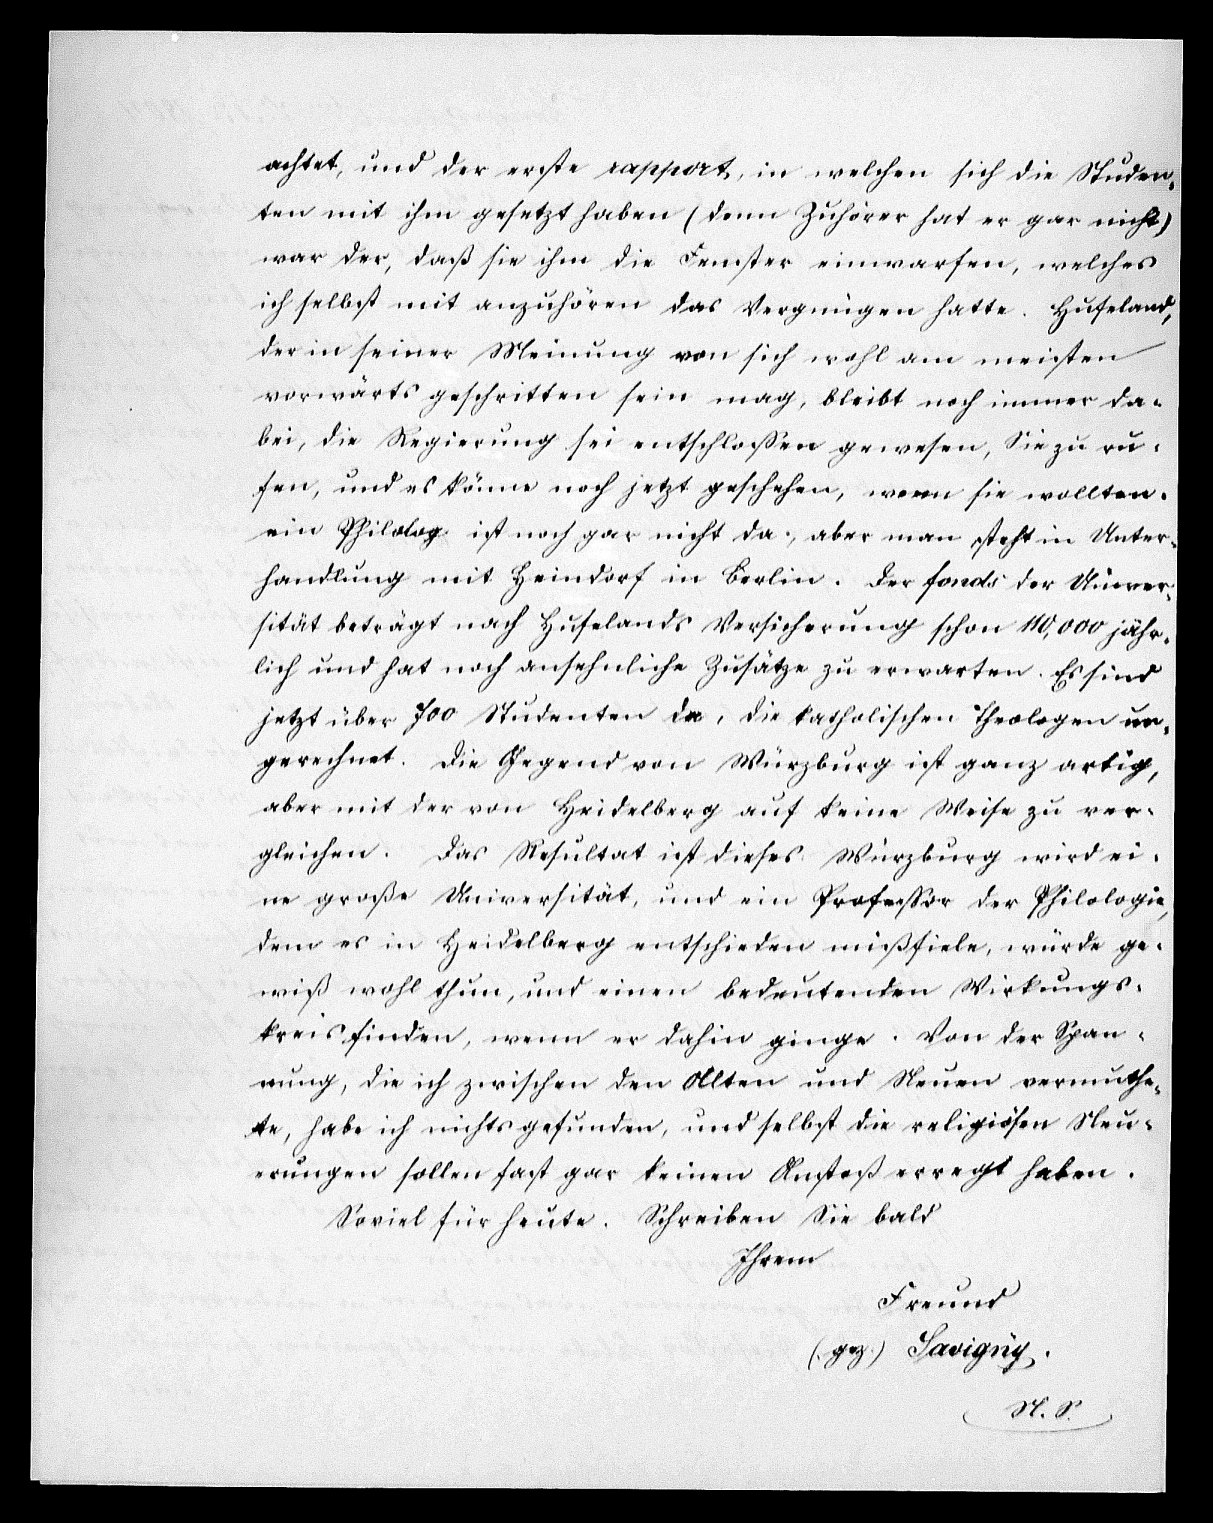 achtet, und der erste rapport, in welchen sich die Studen-
ten mit ihm gesetzt haben (denn Zuhörer hat er gar nicht)
war der, daß sie ihm die Fenster einwarfen, welches
ich selbst mit anzuhören das Vergnügen hatte. Hufeland,
der in seiner Meinung von sich wohl am meisten
vorwärts geschritten sein mag, bleibt noch immer da-
bei, die Regierung sei entschlossen gewesen, Sie zu ru-
fen, und es könne noch jetzt geschehen, wenn sie wollten.
ein Philolog ist noch gar nicht da, aber man steht in Unter-
handlung mit Heindorf in Berlin. Der fonds der Univer-
sität beträgt nach Hufelands Versicherung schon 110,000 jähr-
lich und hat noch ansehnliche Zusätze zu erwarten. Es sind
jetzt über 700 Studenten da, die katholischen Theologen un-
gerechnet. Die Gegend von Würzburg ist ganz artig,
aber mit der von Heidelberg auf keine Weise zu ver-
gleichen. Das Resultat ist dieses: Würzburg wird ei-
ne große Universität, und ein Professor der Philologie,
dem es in Heidelberg entschieden mißfiele, würde ge-
wiß wohl thun, und einen bedeutenden Wirkungs-
kreis finden, wenn er dahin ginge. Von der Span-
nung, die ich zwischen den Alten und Neuen vermuthe-
te, habe ich nichts gefunden, und selbst die religiösen Neu-
erungen sollen fast gar keinen Anstoß erregt haben.
Soviel für heute. Schreiben Sie bald
Ihrem
Freund
(gez.) Savigny.
N. S.